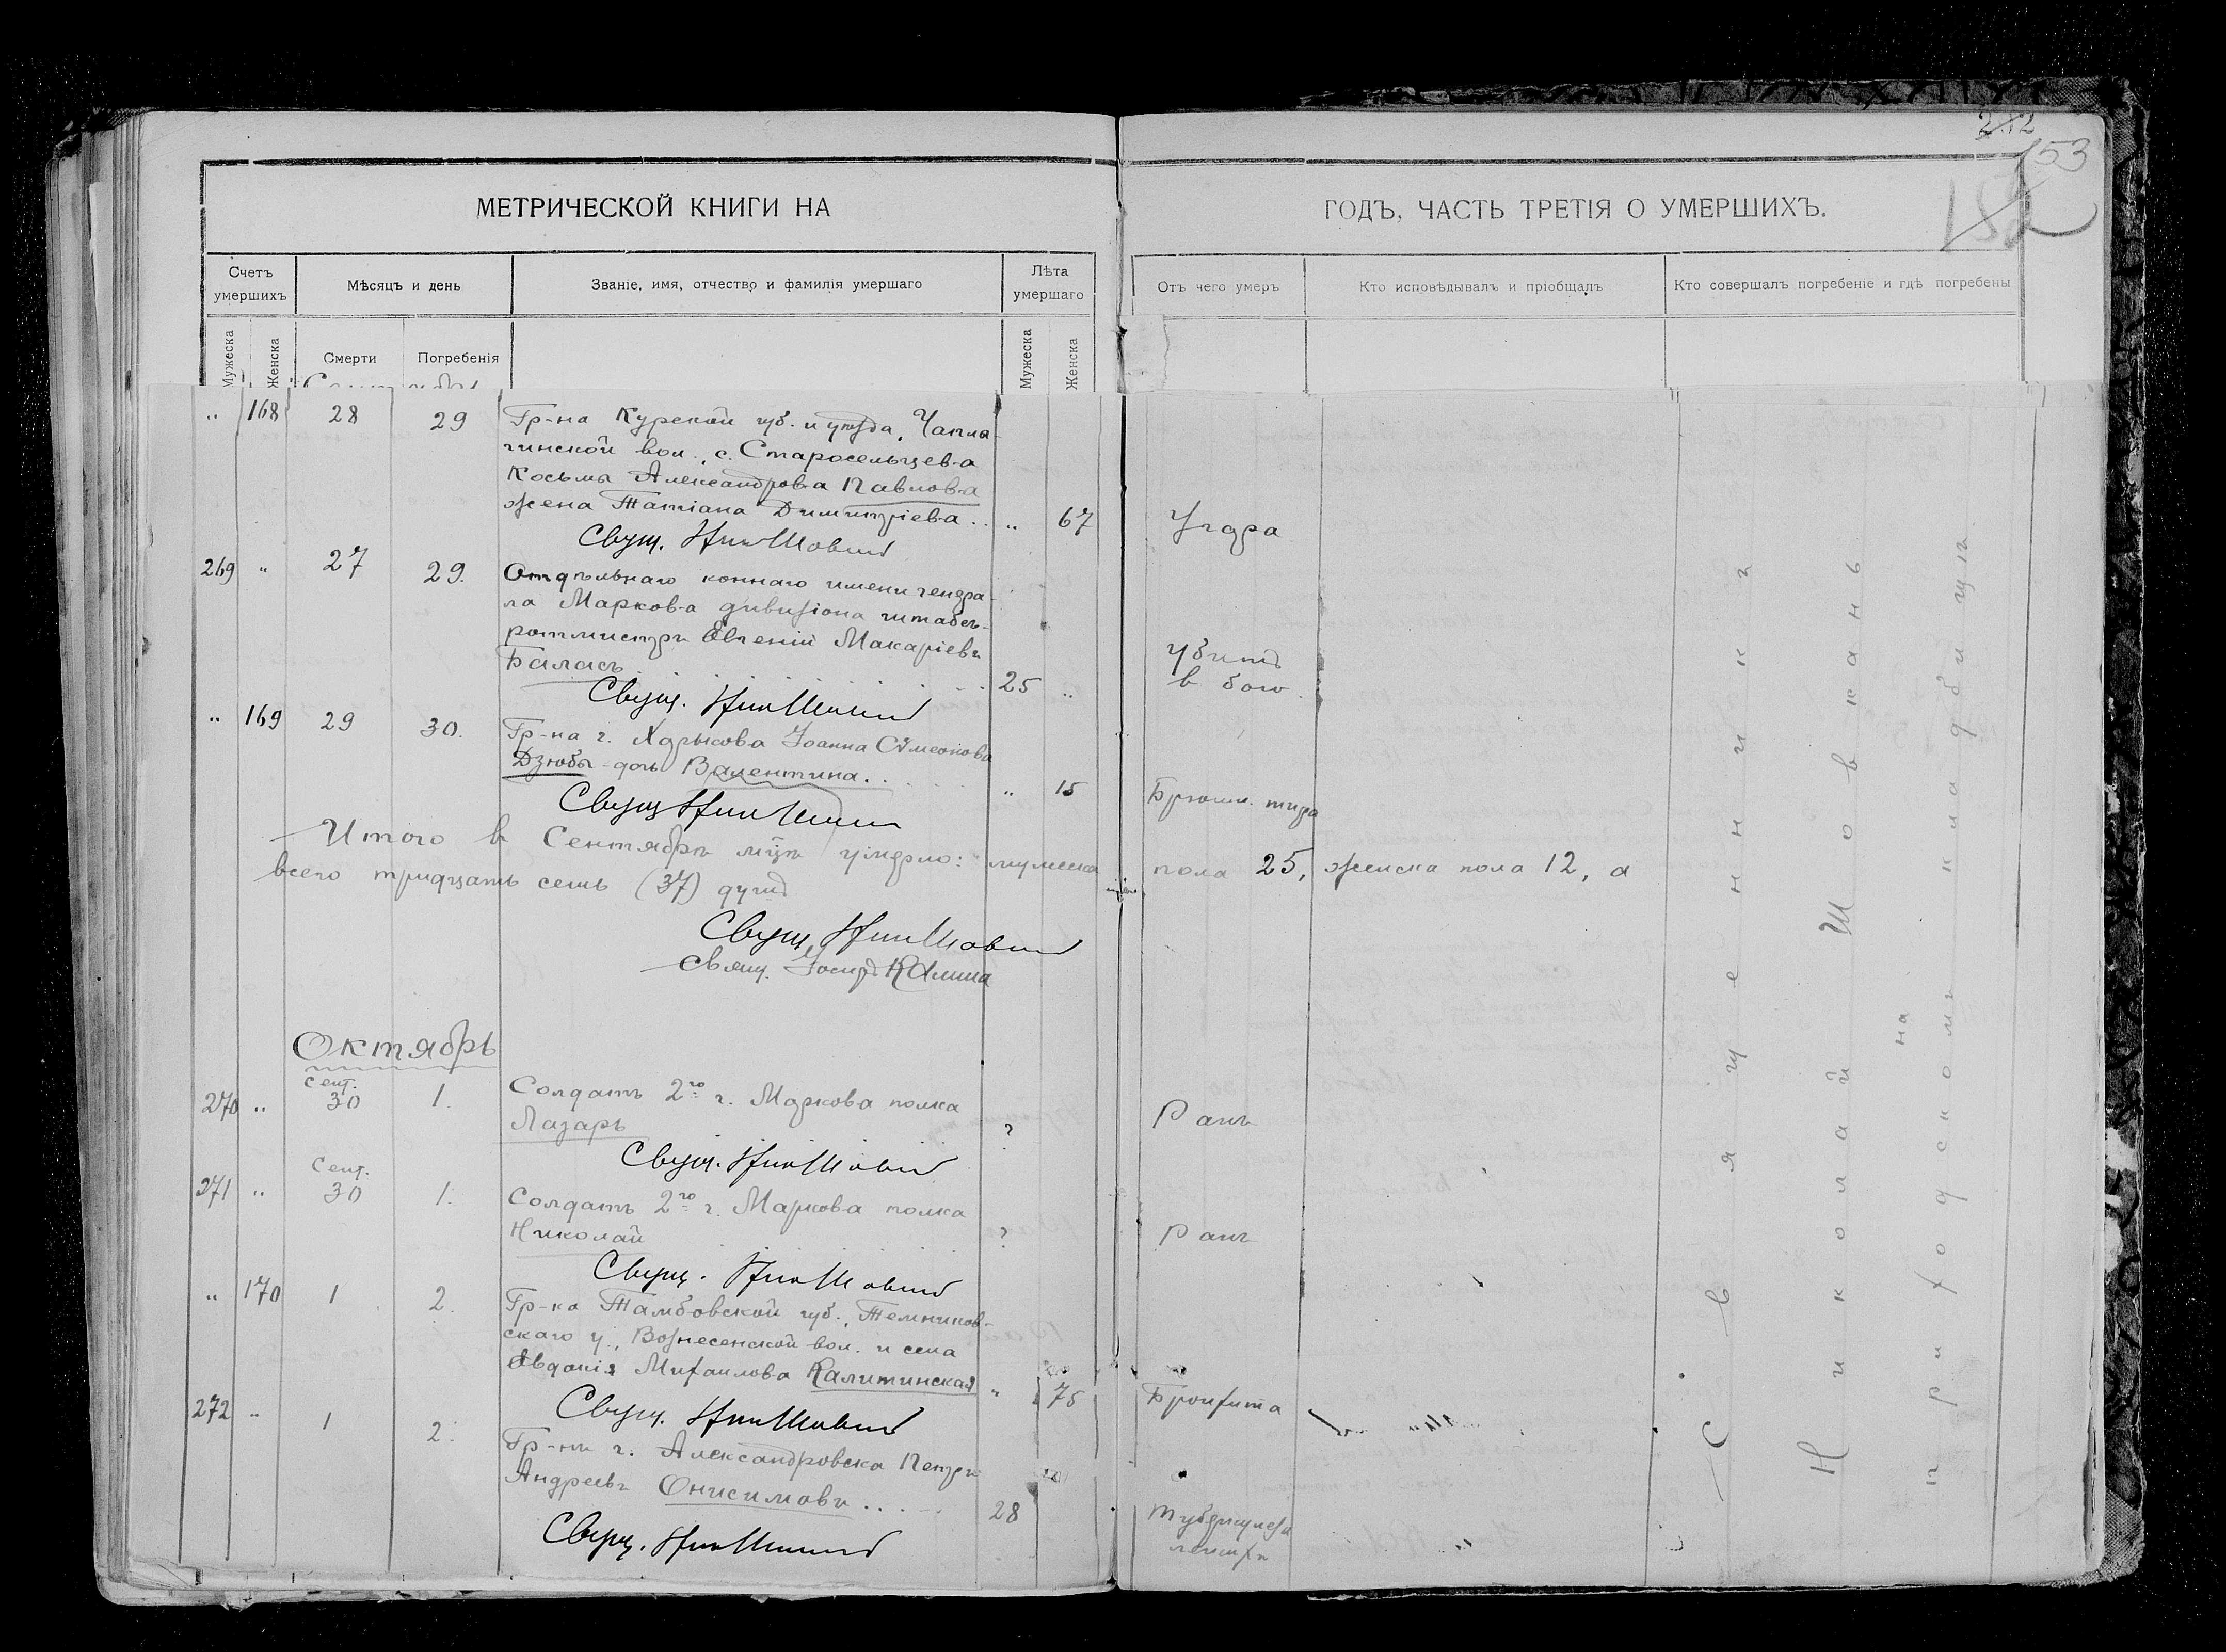 212
153
182
МЕТРИЧЕСКОЙ КНИГИ НА ГОДЪ, ЧАСТЬ ТРЕТІЯ О УМЕРШИХЪ.
Счетъ умершихъ
Мѣсяцъ и день
Званіе, имя, отчество и фамилія умершаго
Лѣта умершаго
Отъ чего умеръ
Кто исповѣдывалъ и пріобщалъ
Кто совершалъ погребеніе и гдѣ погребены
Мужеска
Женска
Смерти
Погребенія
Мужеска
Женска
„ 168 28 29 Гр-на Курской губ. и уѣзда, Чапла-
гинской вол., с. Старосельцева
Косьмы Александрова Павлова
жена Татіана Димитріева .. „ 67 Тифа
Свящ. Ник Шовкан
269 „ 27 29. Отдѣльнаго коннаго имени генера-
ла Маркова дивизіона штабсъ-
ротмистръ Евгеній Макаріевъ
Баласъ 25 „ Убитъ
в бою.
Свящ. Ник Шовкан
„ 169 29 30. Гр-на г. Харькова Іоанна Сѵмеонова
Дзюбы дочь Валентина.. „ 15 Брюшн. тифа
Свящ Ник Шовкан
Итого в Сентябрѣ мцѣ умерло: мужеска пола 25, женска пола 12, а
всего тридцать семь (37) душъ
Свящ Ник Шовкан
Свящ. Іосифъ
Октябрь
270 „ Сент. 30 1. Солдатъ 2го г. Маркова полка
Лазарь ? Ранъ
Свящ. Ник Шовкан
271 „ Сент. 30 1. Солдатъ 2го г. Маркова полка
Николай ? Ранъ
Свящ. Ник Шовкан
„ 170 1 2. Гр-ка Тамбовской губ., Темников-
скаго у., Вознесенской вол. и села
Евдокія Михаилова Калитинская „ 75 Бронхита
Свящ. Ник Шовкан
272 „ 1 2. Гр-нъ г. Александровска Петръ
Андреевъ Онисимовъ ... 28 Туберкулеза
легкихъ
Свящ. Ник Шовкан
Священникъ
Николай Шовканъ
на
приходскомъ кладбищѣ